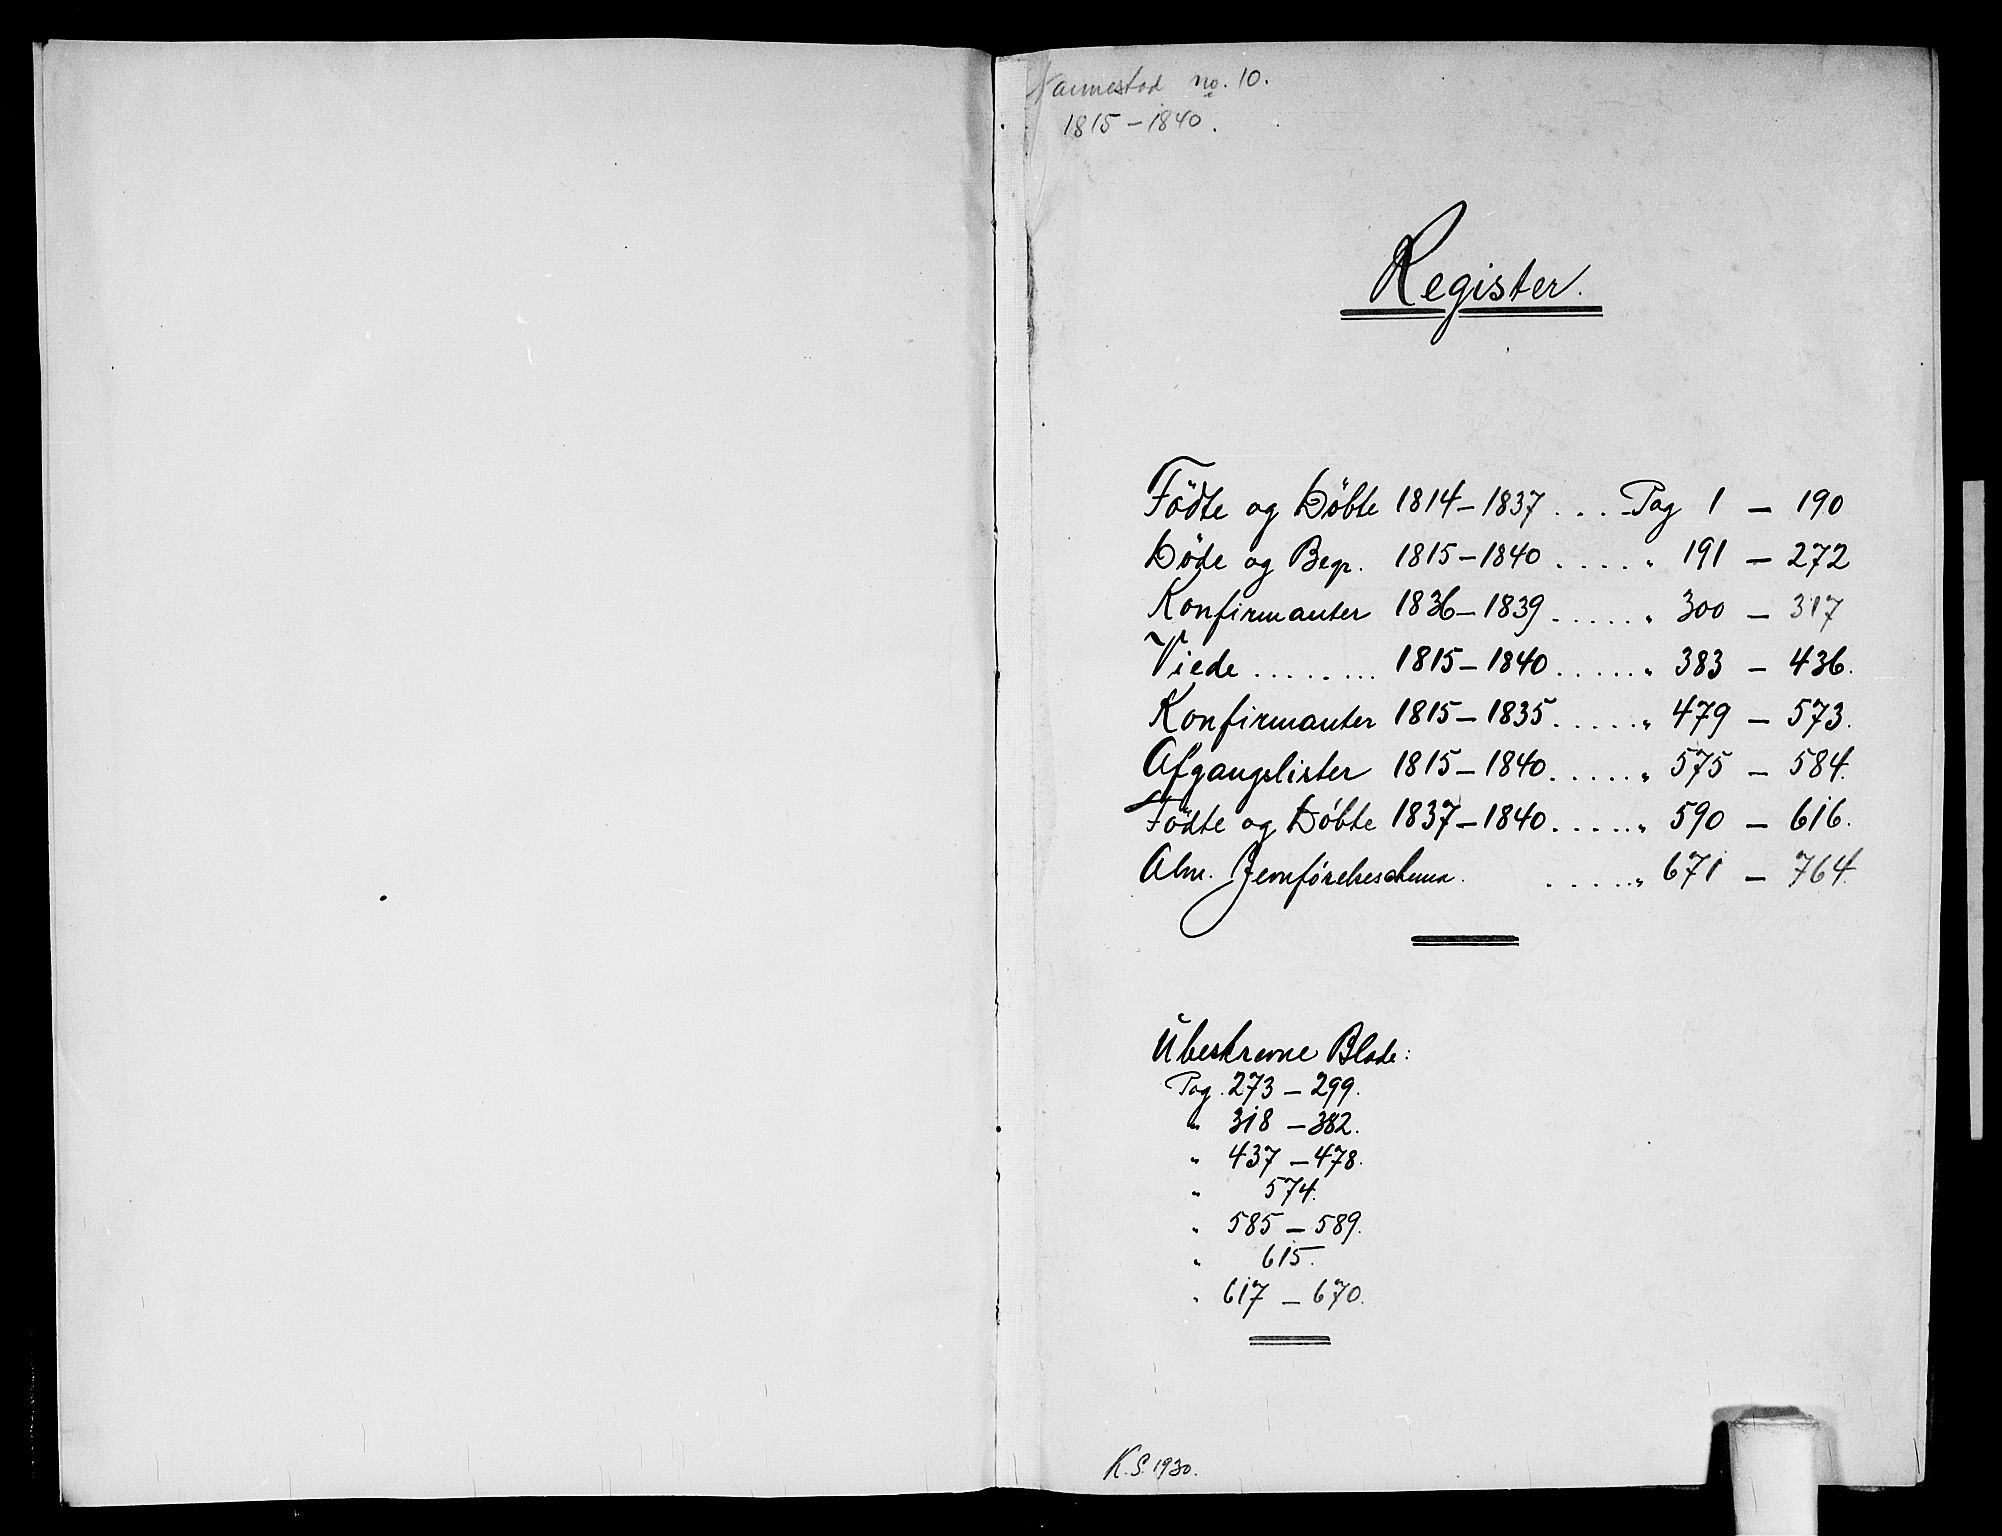 Nannestad no. 10.
1815 – 1840.
Register.
Födte og Döbte 1814 – 1837 . . . Pag 1 – 190
Döde og Begr. 1815 – 1840 . . . . " 191 – 272
Konfirmanter 1836 – 1839 . . . . . " 300 – 317
Viede . . . . . . . . 1815 – 1840 . . . . . " 383 – 436.
Konfirmanter 1815 – 1835 . . . . . " 479 – 573.
Afgangslister 1815 – 1840 . . . . . " 575 – 584.
Födte og Döbte 1837 – 1840 . . . . . " 590 – 616.
Alm. Jevnförelsesschema . . . . . . " 671 – 764.
Ubeskrevne Blade:
Pag. 273 – 299.
" 318 – 382.
" 437 – 478.
" 574.
" 585 – 589.
" 615.
" 617 – 670.
K.S. 1930.